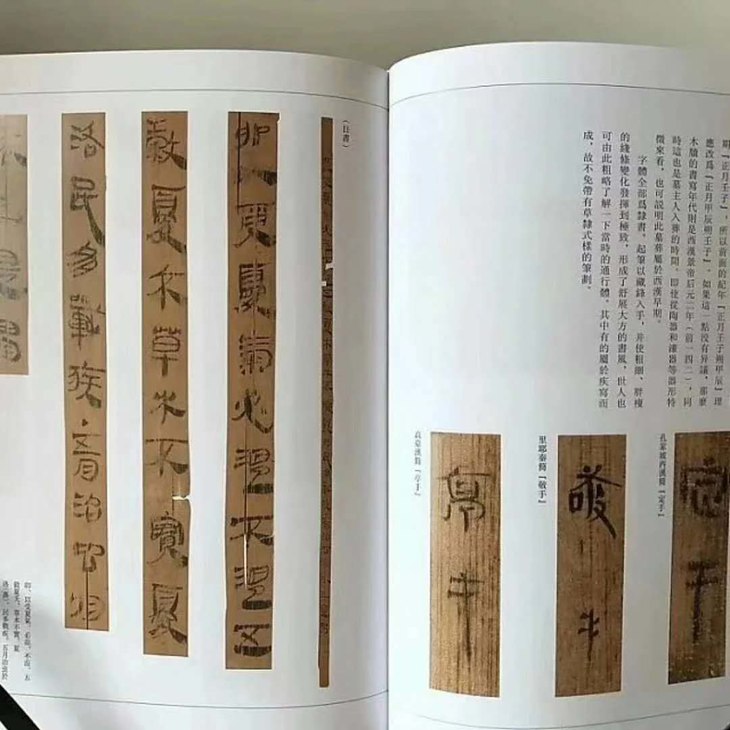 期『正月壬子』，所以前面的紀年『正月壬子朔甲辰』理
應改爲『正月甲辰朔壬子』，如果這一點没有异議，那麼
木牘的書寫年代則是西漢景帝后元二年（前一四二），同
時這也是墓主人入葬的時間。即使從陶器和漆器等器形特
徵來看，也可説明此墓葬屬於西漢早期。
字體全部爲隸書。起筆以藏鋒入手，并使粗細、肥瘦
的綫條變化發揮到極致，形成了舒展大方的書風，世人也
可由此粗略了解一下當時的通行體。其中有的屬於疾寫而
成，故不免帶有草隸式樣的筆劃。
孔家坡西漢簡『定手』
定手
里耶秦簡『敬手』
敬手
高臺漢簡『亭手』
亭手
（日書）
卯以夏氣必溼不溼五
穀夏夭草木不實夏
洛民多戰疾五月治虫於